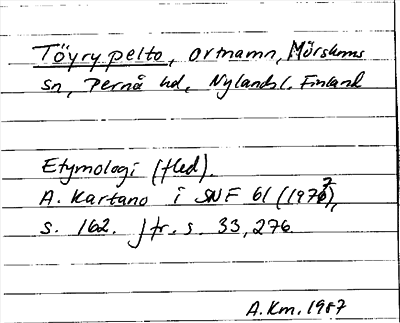 Töyrypelto, ortnamn, Mörskoms
sn, Pernå hd, Nylands l. Finland
Etymologi (fled).
A. Kartano i SNF 61 (1972),
s. 162. Jfr. s. 33, 276
A.Km. 1987